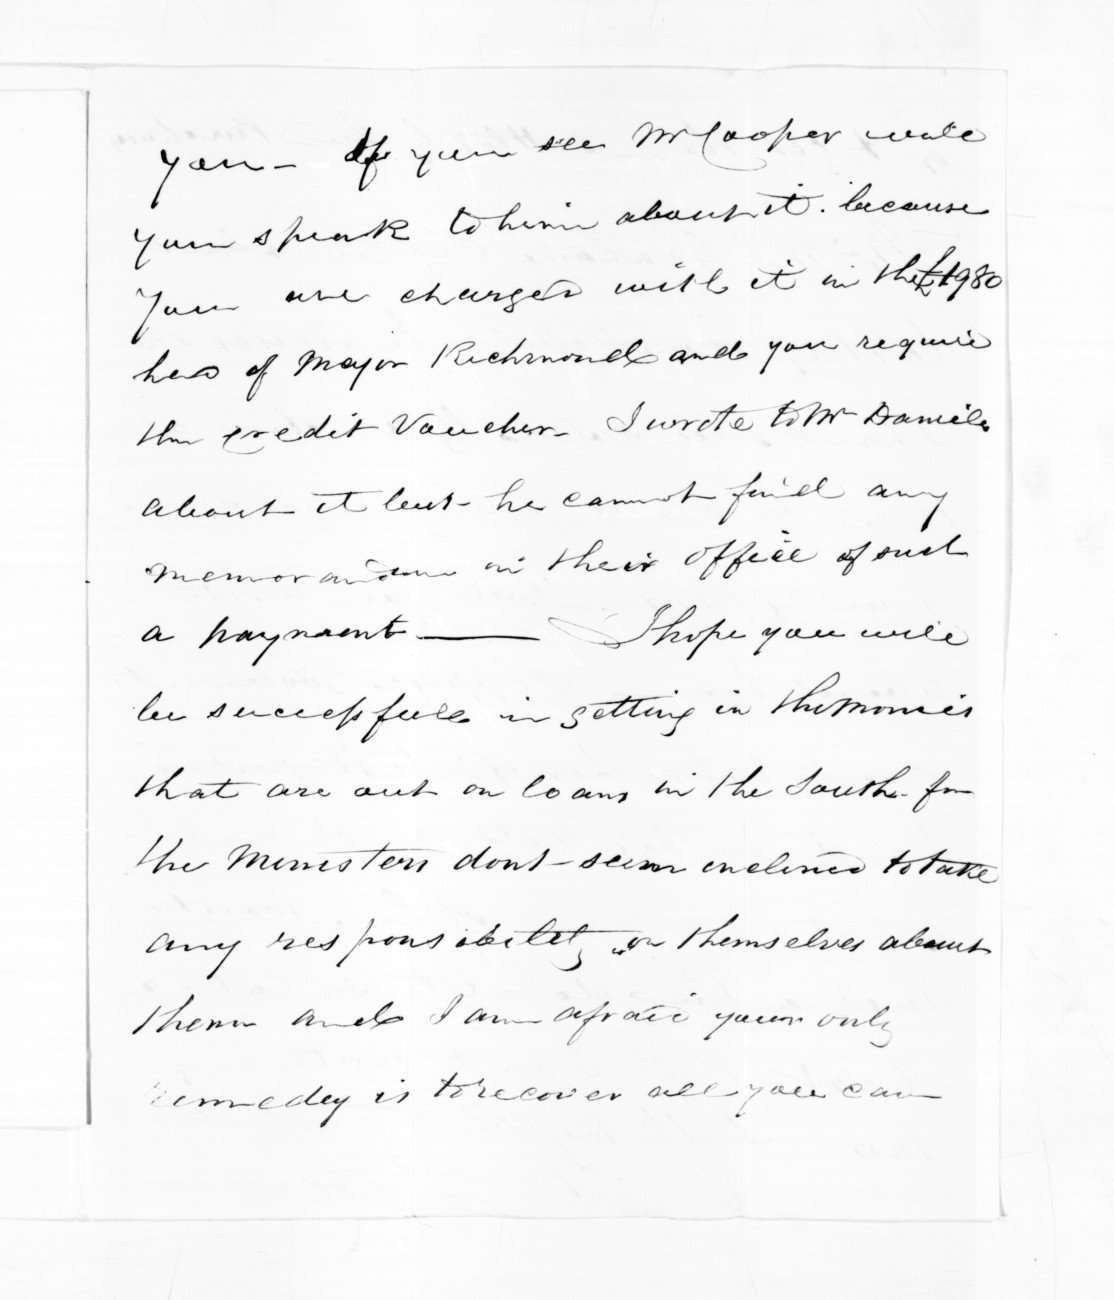 you - If you see Mr Cooper will
you speak to him about it. because
you are charged with it in the £1980
of Major Richmond and you require
the credit Voucher - I wrote to Mr Daniell
about it but he cannot find any
memorandum in their office of such
a payment — I hope you will
be successfull in getting in the monies
that are out on loans in the South - for
the Ministers dont seem inclined to take
any responsibility on themselves about
them and I am afraid your only
remedy is to recover all you can